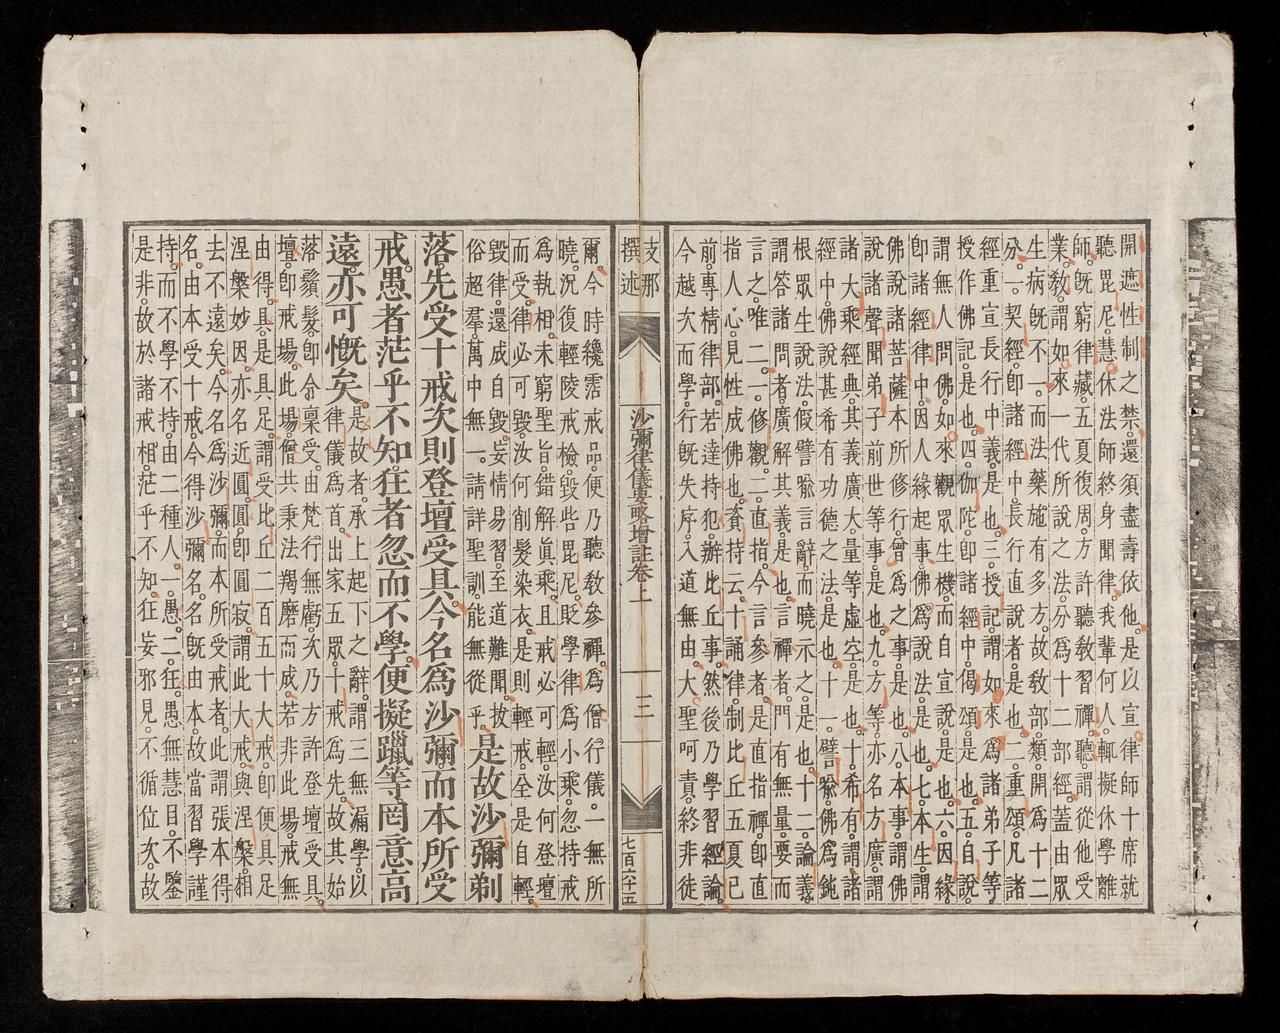 開遮性制之禁。還須盡壽依他。是以宣律師十席就
聽毘尼。慧休法師終身聞律。我輩何人。輒擬休學離
師。旣窮律藏。五夏復周。方許聽教習禪。聽謂從他受
業。教謂如來一代所說之法。分為十二部經。蓋由眾
生病旣不一。而法藥施有多方。故教部類。開為十二
分。一契經。卽諸經中長行直說者。是也。二重頌。凡諸
經重宣長行中義。是也。三授記。謂如來為諸弟子等。
授作佛記。是也。四伽陀。卽諸經中偈頌。是也。五自說。
謂無人問佛。如來觀眾生機。而自宣說。是也。六因緣。
卽諸經律中。因人緣起事。佛為說法。是也。七本生。謂
佛說諸菩薩本所修行。曾為之事。是也。八本事。謂佛
說諸聲聞弟子前世等事。是也。九方等。亦名方廣。謂
諸大乘經典。其義廣大。量等虛空。是也。十希有。謂諸
經中。佛說甚希有功德之法。是也。十一譬喻。佛為鈍
根眾生說法。假譬喻言辭。而曉示之。是也。十二論義。
謂答諸問者。廣解其義。是也。言禪者。門有無量。要而
言之。唯二。一修觀。二直指。今言參者。是直指禪。卽直
指人心。見性成佛也。資持云。十誦律。制比丘五夏已
前。專精律部。若達持犯。辦比丘事。然後乃學習經論。
今越次而學。行旣失序。入道無由。大聖呵責。終非徒
支那
撰述
沙彌律儀要略增註卷上
三
七百六十五
爾。今時纔霑戒品。便乃聽教參禪。為僧行儀。一無所
曉。況復輕陵戒檢。毀呰毘尼。貶學律為小乘。忽持戒
為執相。未窮聖旨。錯解眞乘。且戒必可輕。汝何登壇
而受。律必可毀。汝何削髮染衣。是則輕戒。全是自輕。
毀律。還成自毀。妄情易習。至道難聞。拔
俗超羣。萬中無一。請詳聖訓。能無從乎。是故沙彌剃
落。先受十戒。次則登壇受具。今名為沙彌。而本所受
戒。愚者茫乎不知。狂者忽而不學。便擬躐等。罔意高
遠。亦可慨矣。是故者。承上起下之辭。謂三無漏學。以
律儀為首。出家五眾。十戒為先。故其始
落鬚髮。卽令稟受。由梵行無虧。次乃方許登壇受具。
壇。卽戒場。此場僧共秉法羯磨而成。若非此場。戒無
由得。具。是具足。謂受比丘二百五十大戒。卽便具足
涅槃妙因。亦名近圓。圓卽圓寂。謂此大戒。與涅槃相
去不遠矣。今名為沙彌。而本所受戒者。此謂張本得
名。由本受十戒。今得沙彌名。名旣由本。故當習學謹
持。而不學不持。由二種人。一愚。二狂。愚無慧目。不鑒
是非。故於諸戒相。茫乎不知。狂妄邪見。不循位次。故